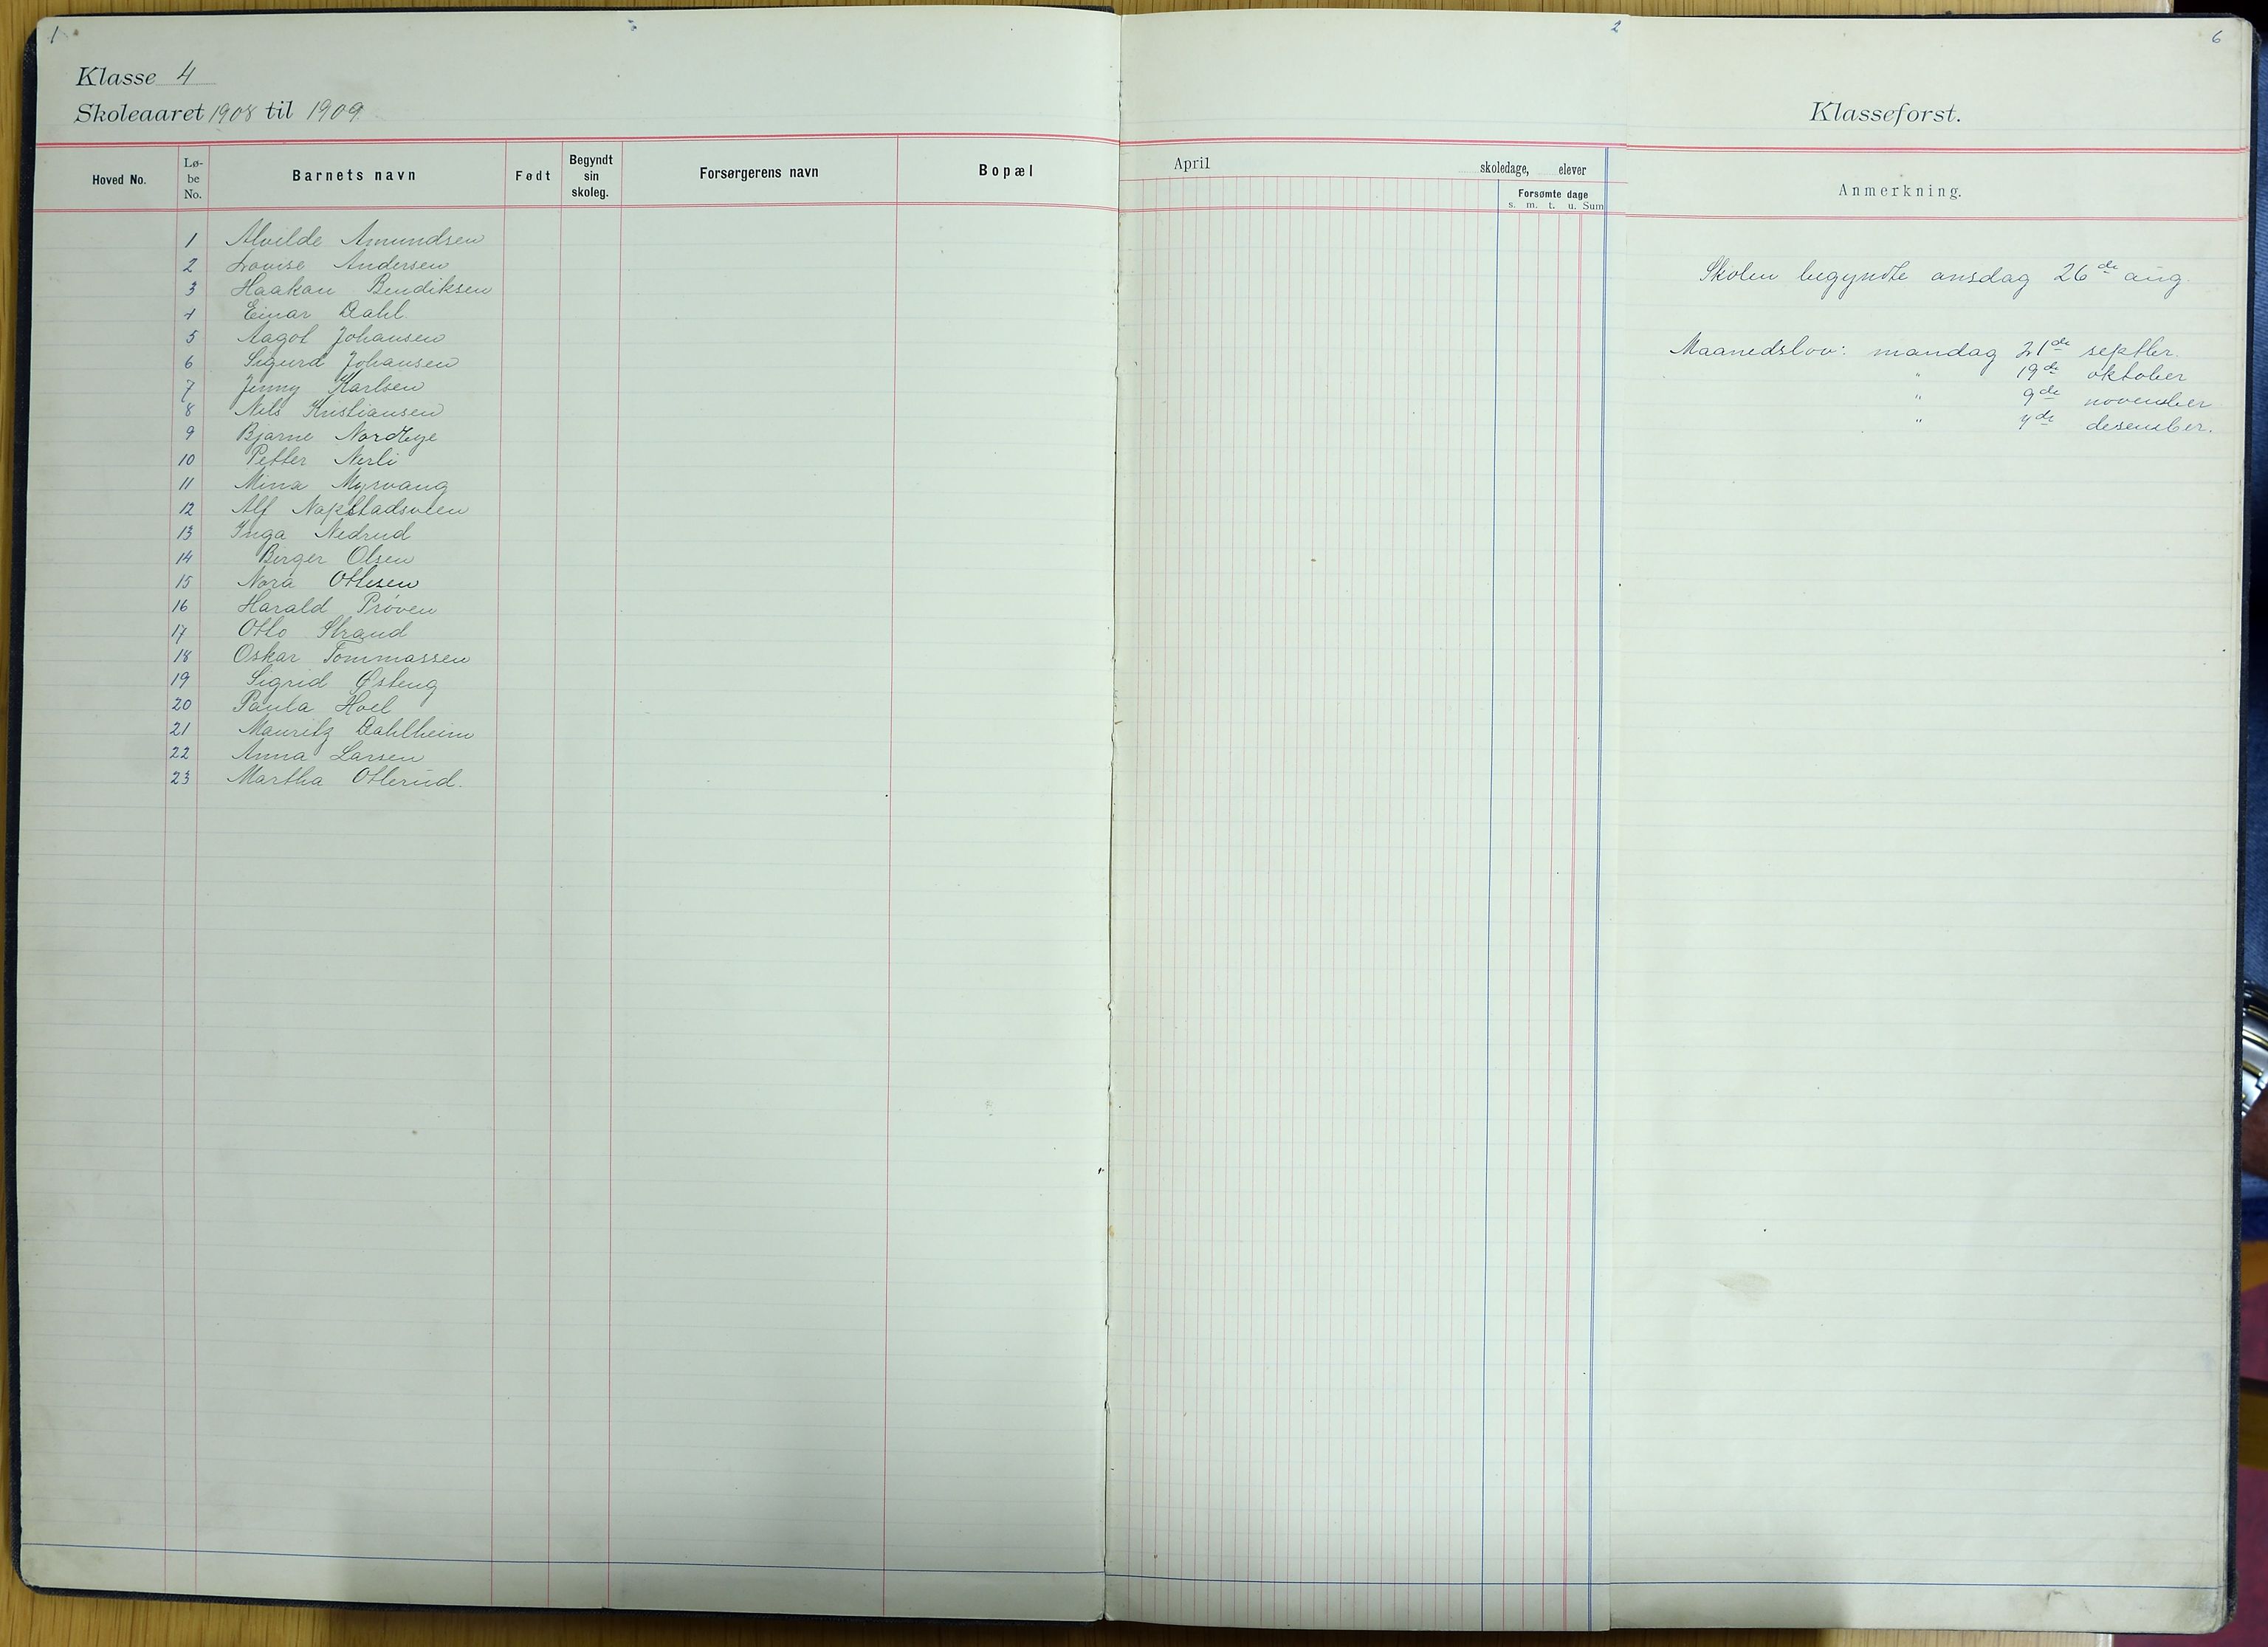 1
Klasse 4
Skoleaaret 1908 til 1909
Hoved No.
Lø-
be
No.
Barnets navn
Født
Begyndt
sin
skoleg.
Forsørgerens navn
Bopæl
1 Alvilde Amundsen
2 Lovise Andersen
3 Haakan Bendiksen
4 Einar Dahl.
5 Aagot Johansen
6 Sigurd Johansen
7 Jenny Karlsen
8 Nils Kristiansen
9 Bjarne Nordbye
10 Petter Nerli
11 Mina Myrvang
12 Alf
13 Inga Nedrud
14 Birger Olsen
15 Nora Ottesen
16 Harald Prøven
17 Otto Strand
18 Oskar Tommassen
19 Sigrid Østeng
20 Paula Hoel
21 Mauritz Dahlheim
22 Anna Larsen
23 Martha Otterud.
2
April
skoledage, elever
Forsømte dage
s. m. t. u. Sum
6
Klasseforst.
Anmerkning.
Skolen begyndte onsdag 26de aug.
Maanedslov: mandag 21de septbr.
" 19de oktober
" 9de november
" 7de desember.